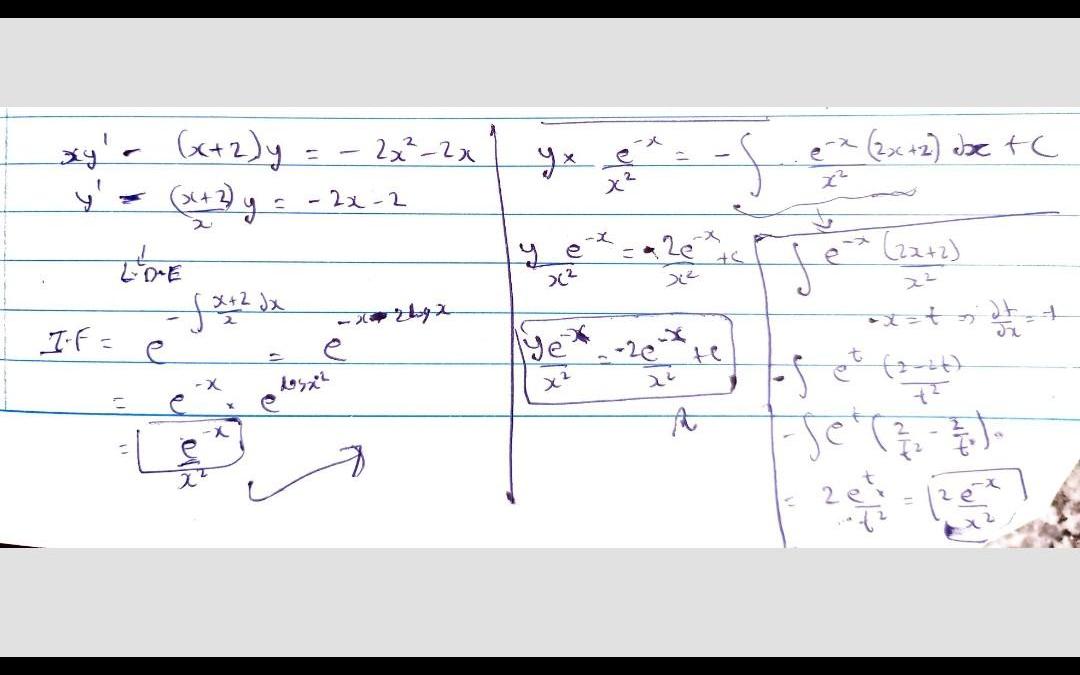 xy' - (x+2)y = - 2x² - 2x
y' - (x+2)/x y = - 2x - 2
↓
L.D.E
I.F = e^(-∫ (x+2)/x dx) = e^(-x - 2log x)
= e^(-x) × e^(log x²)
= e^(-x)/x²
y × e^(-x)/x² = - ∫ e^(-x)(2x+2)/x² dx + C
y e^(-x)/x² = -2e^(-x)/x² + c
ye^(-x)/x² = -2e^(-x)/x² + c
∫ e^(-x) (2x+2)/x²
-x = t ⇒ dt/dx = -1
-∫ e^t (2-2t)/t²
-∫ e^t (2/t² - 2/t).
= 2e^t/t² = 2e^(-x)/x²